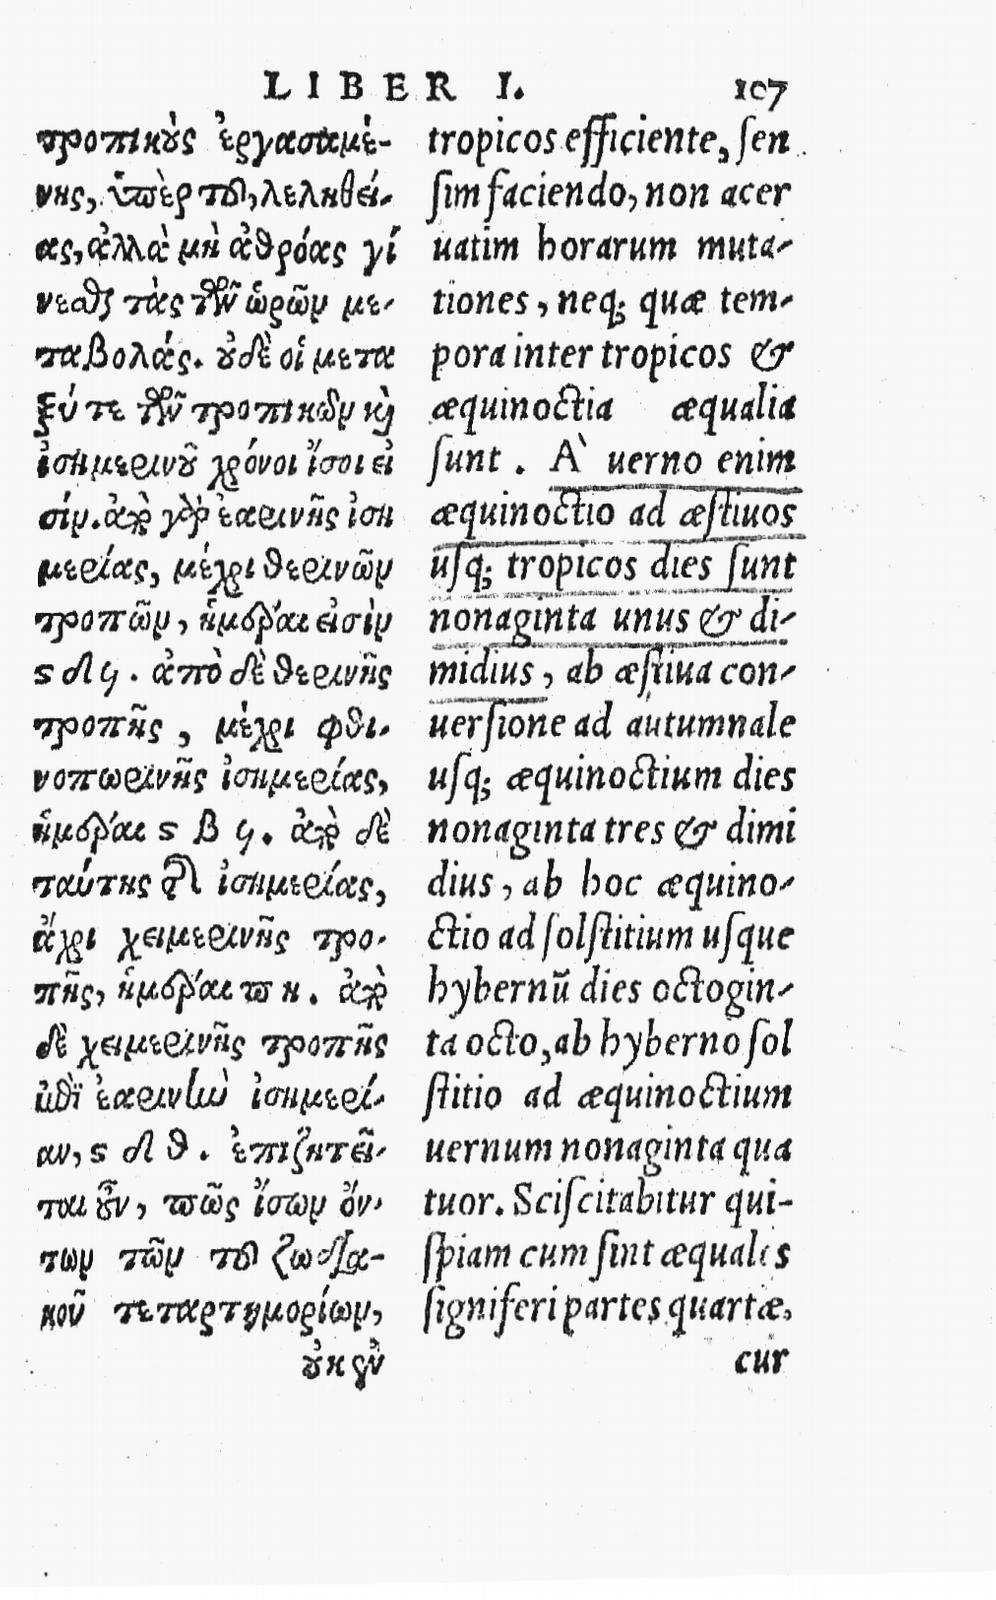 LIBER I. 107
τροπικοὺς ἐργασαμέ-
νης, ὑπὲρ τοῦ, λεληθεί-
ας, ἀλλὰ μὴ ἀθρόας γί
νεσθαι τὰς τῶν ὡρῶν με-
ταβολάς. οὐδὲ οἱ μετα
ξύ τε τῶν τροπικῶν καὶ
ἰσημερινοῦ χρόνοι ἴσοι εἰ
σίν. ἀπὸ γὰρ ἐαρινῆς ἰση
μερίας, μέχρι θερινῶν
τροπῶν, ἡμέραι εἰσὶν
ϛ δ ϟ. ἀπὸ δὲ θερινῆς
τροπῆς, μέχρι φθι-
νοπωρινῆς ἰσημερίας,
ἡμέραι ϛ β ϟ. ἀπὸ δὲ
ταύτης τῆς ἰσημερίας,
ἄχρι χειμερινῆς τρο-
πῆς, ἡμέραι π η. ἀπὸ
δὲ χειμερινῆς τροπῆς
ἐπὶ ἐαρινὴν ἰσημερί-
αν, ϛ δ θ. ἐπιζητεῖ-
ται οὖν, πῶς ἴσων ὄν-
των τῶν τοῦ ζωδια-
κοῦ τεταρτημορίων,
οὐκ ἐν
tropicos efficiente, ſen
ſim faciendo, non acer
uatim horarum muta-
tiones, neq; quæ tem-
pora inter tropicos &
æquinoctia æqualia
ſunt. A' uerno enim
æquinoctio ad æſtiuos
uſq; tropicos dies ſunt
nonaginta unus & di-
midius, ab æſtiua con-
uerſione ad autumnale
uſq; æquinoctium dies
nonaginta tres & dimi
dius, ab hoc æquino-
ctio ad ſolſtitium uſque
hybernū dies octogin-
ta octo, ab hyberno ſol
ſtitio ad æquinoctium
uernum nonaginta qua
tuor. Sciſcitabitur qui-
ſpiam cum ſint æquales
ſigniferi partes quartæ,
cur